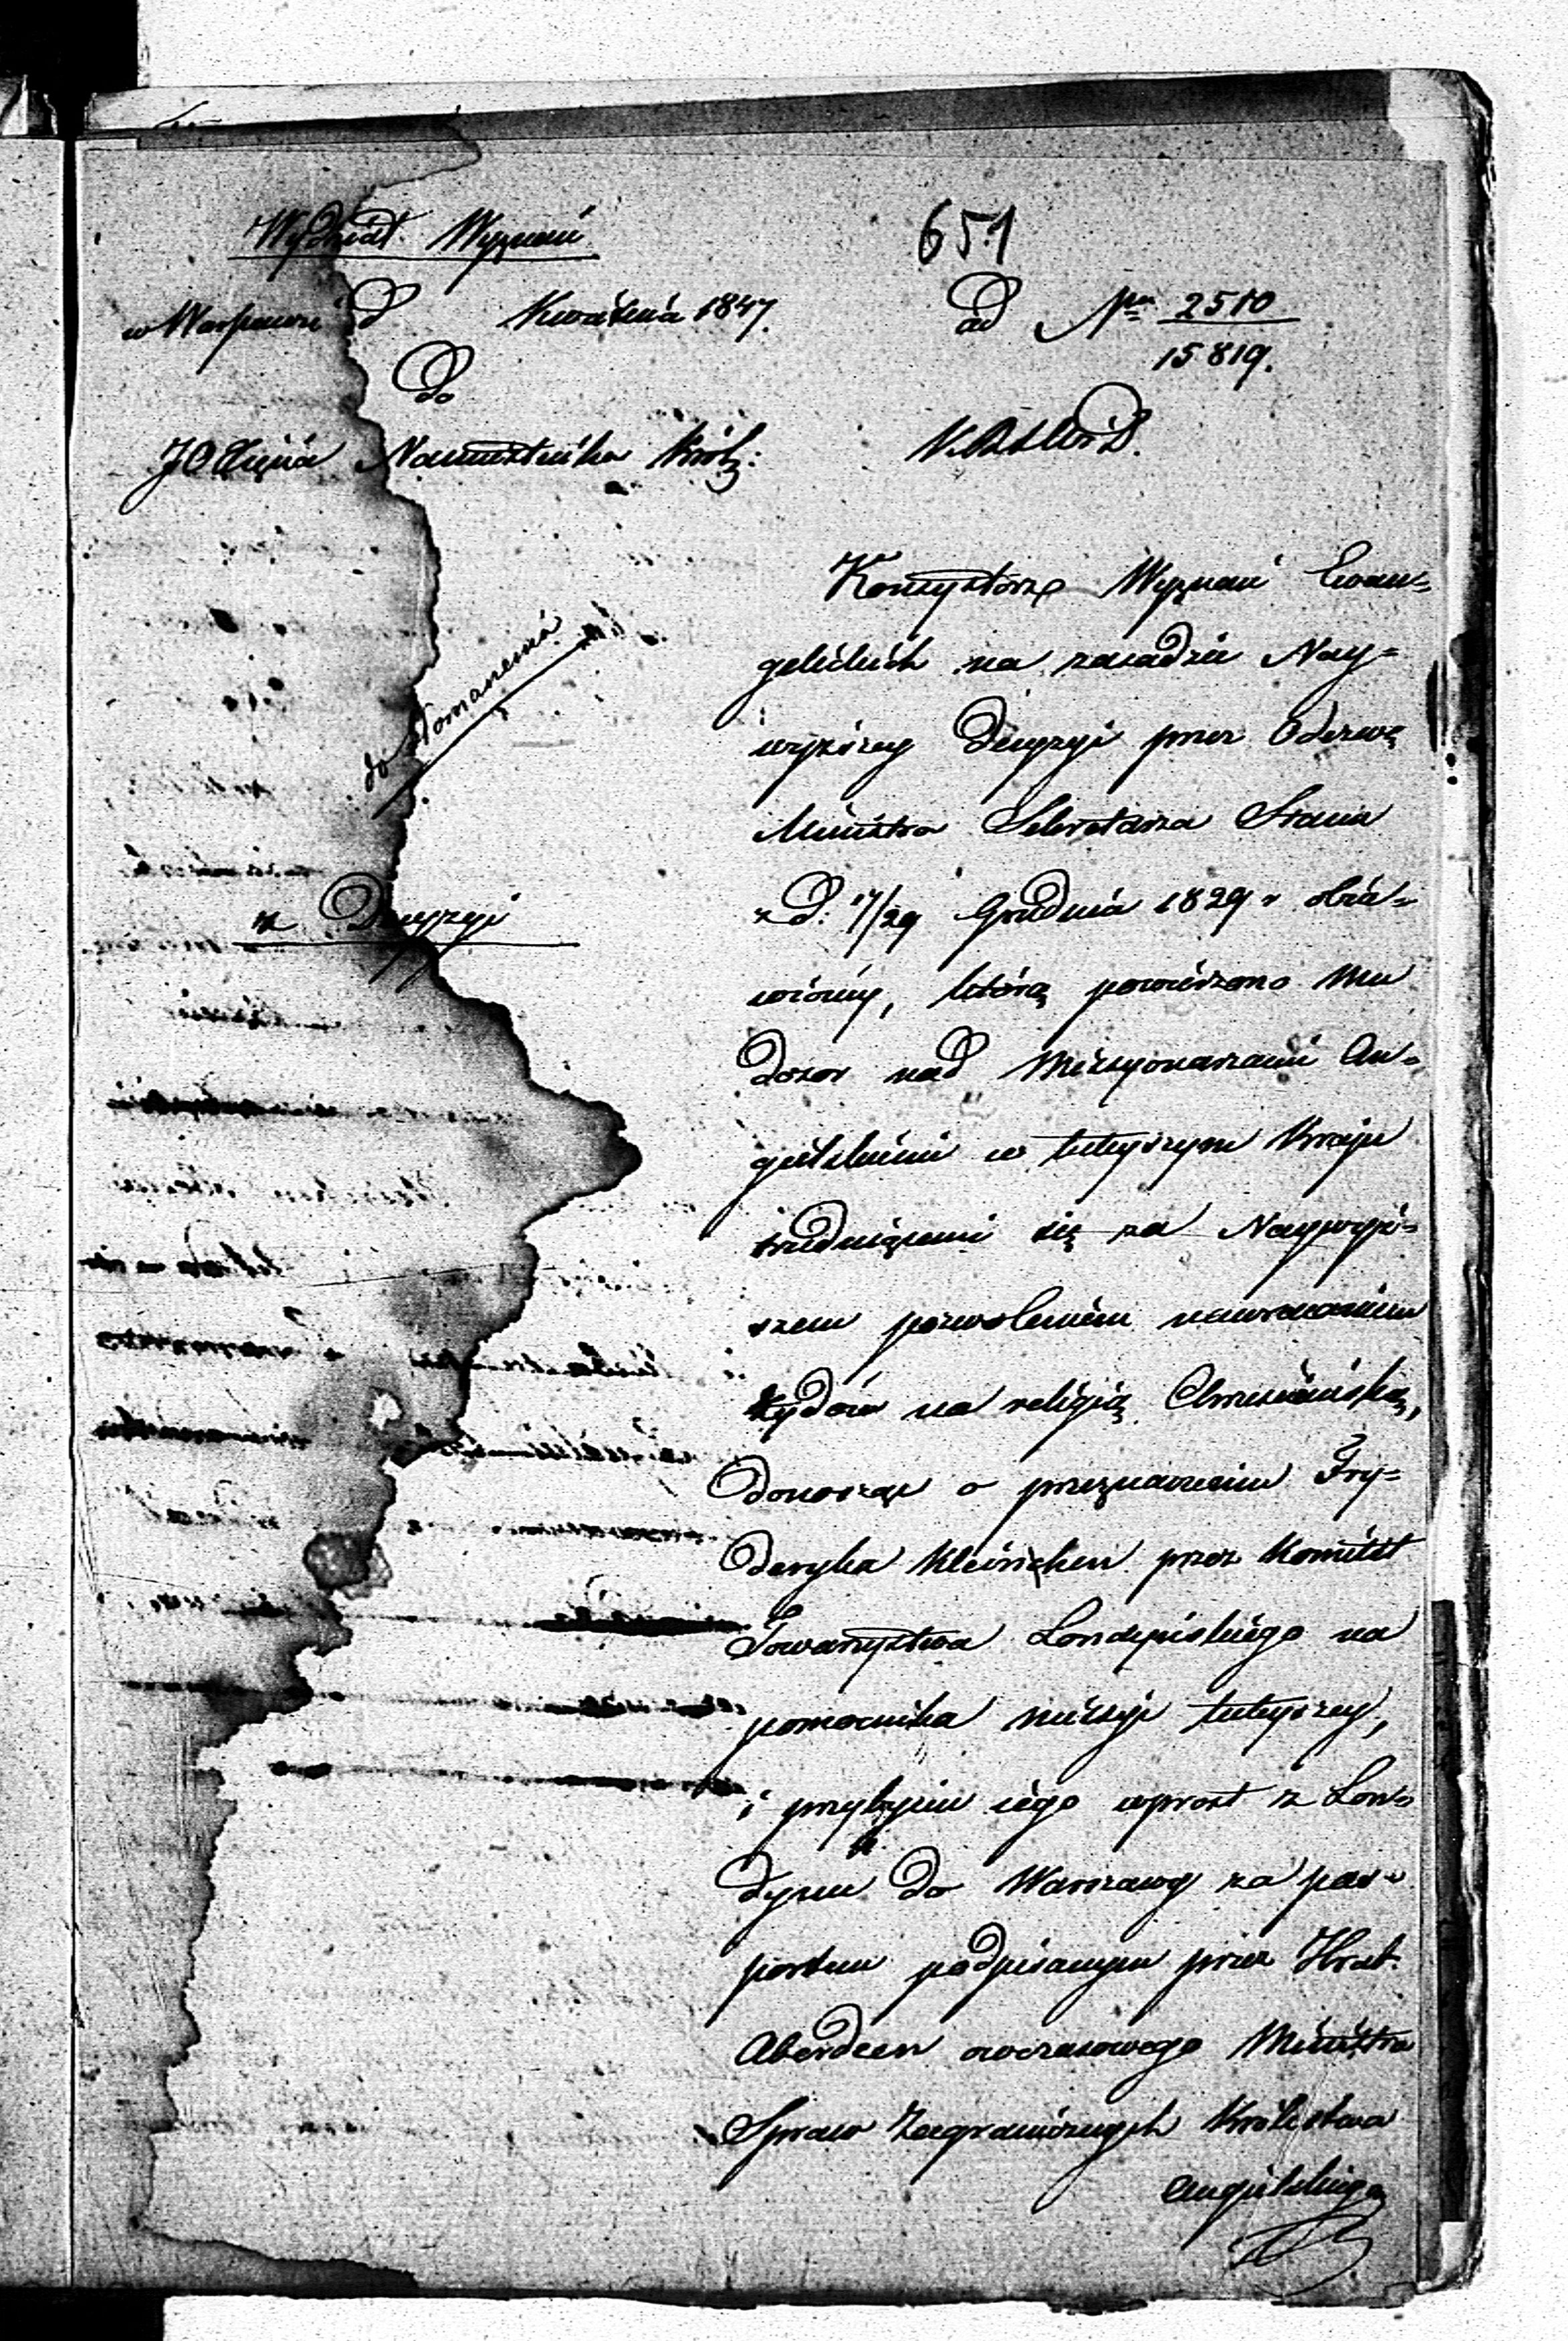 Wydział Wyznań
651
w Warszawie d Kwietnia 1847.
ad Nrm 2510
15819.
do
JO Xięcia Namiestnika Król:
Konsystorz Wyznań Ewan=
gelickich na zasadzie Nay=
wyższey decyzyi przez Odezwę
do tłomaczenia
Ministra Sekretarza Stanu
z d: 17/29 Grudnia 1829 r obia=
z Decyzyi
wioney, którą powierzono mu
dozór nad Missyonarzami An=
gielskiemi w tuteyszym Kraju
trudniącemi się za Naywyż=
szem pozwoleniem nawracaniem
żydów na religią Chrześciańską,
donosząc o przeznaczeniu Fry=
deryka Kleinichen przez Komitet
Towarzystwa Londyńskiego na
pomocnika missyi tuteyszey,
i przybyciu iego wprost z Lon=
dynu do Warszawy za pas=
portem podpisanym przez Hrab.
Aberdeen owczasowego Ministra
Spraw Zagranicznych Królestwa
Angielskiego